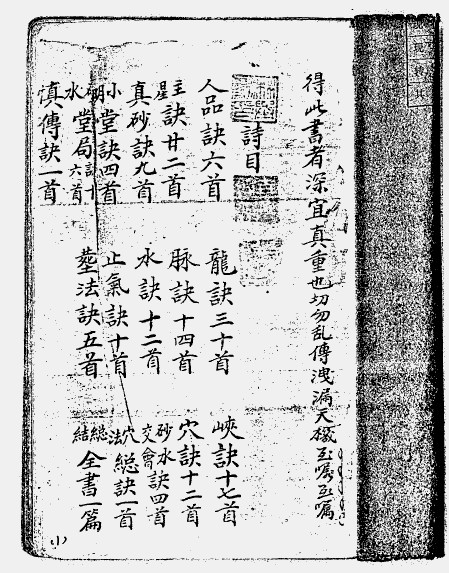 得此書者深宜真重也切勿乱傳洩漏天機至囑至囑
詩目
人品訣六首
龍訣三十首
峽訣十七首
主星訣廿二首
脉訣十四首
穴訣十二首
真砂訣九首
水訣十二首
砂水交會訣四首
小明堂訣四首
止氣訣十首
穴法總訣一首
水堂局訣十六首
塟法訣五首
總結全書一篇
慎傳訣一首